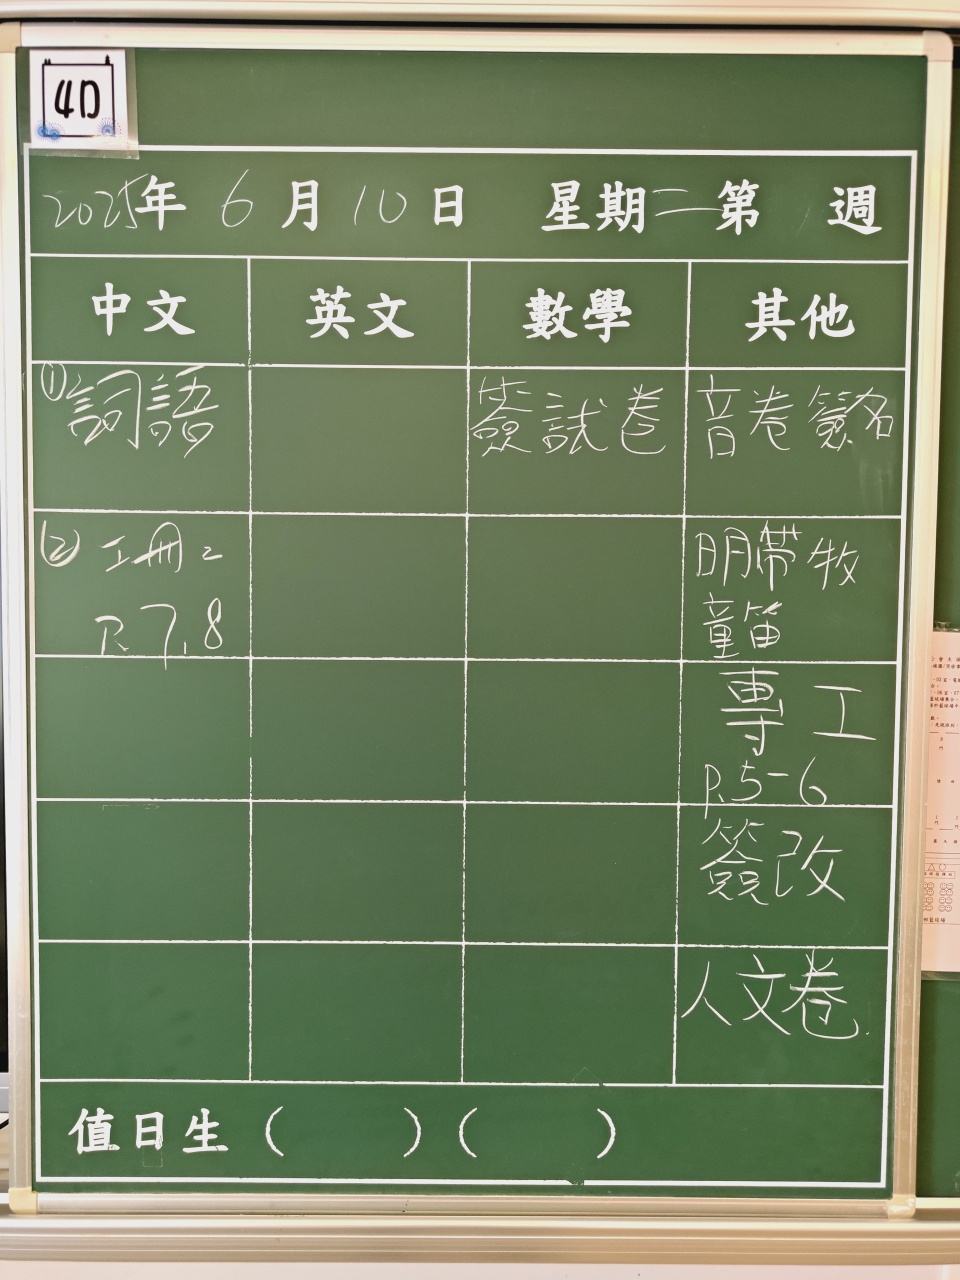 4D
2025年 6 月 10 日 星期二 第 週
中文 英文 數學 其他
① 詞語
簽試卷
音卷簽名
② 工冊2
P.7,8
明帶牧
童笛
專工
P.5-6
簽改
人文卷
值日生 ( ) ( )